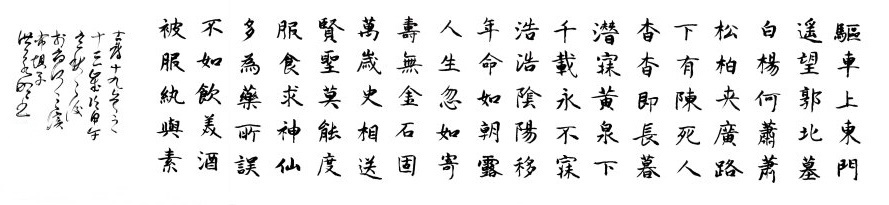 驅車上東門
遙望郭北墓
白楊何蕭蕭
松柏夾廣路
下有陳死人
杳杳即長暮
潛寐黃泉下
千載永不寤
浩浩陰陽移
年命如朝露
人生忽如寄
壽無金石固
萬歲更相送
賢聖莫能度
服食求神仙
多為藥所誤
不如飲美酒
被服紈與素
古詩十九首之
十三